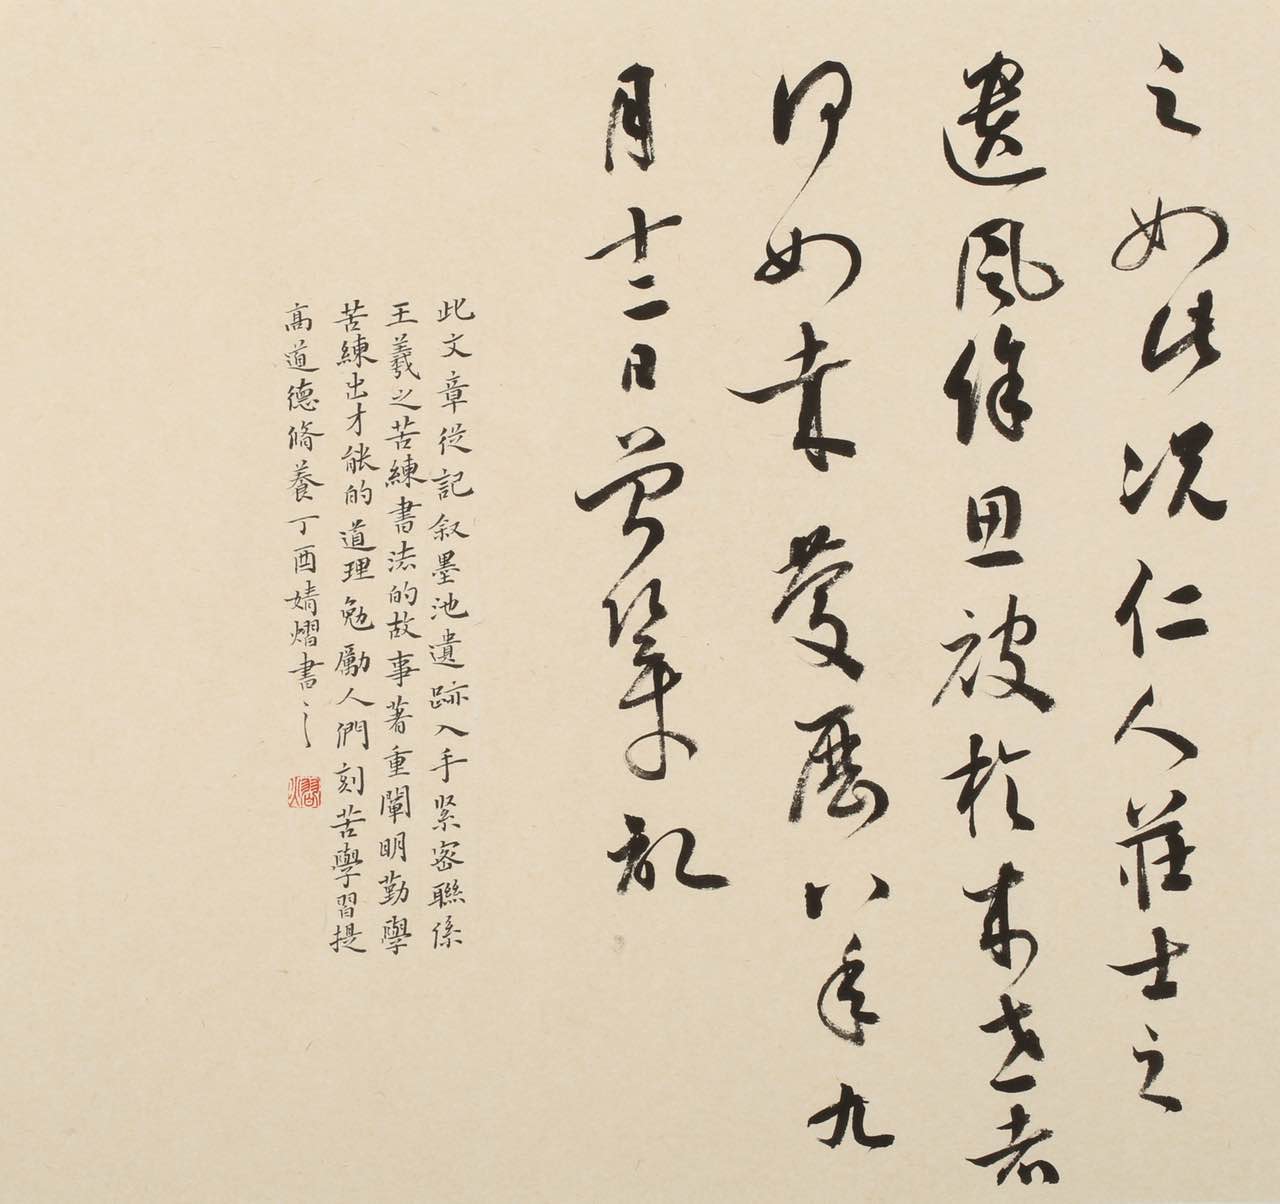 之如此況仁人莊士之
遺風餘思被於來世者
何如哉慶曆八年九
月十二日曾鞏記
此文章從記叙墨池遺跡入手紧密聯係
王羲之苦練書法的故事著重闡明勤學
苦練出才能的道理勉勵人們刻苦學習提
高道德脩養丁酉婧熠書之
熠